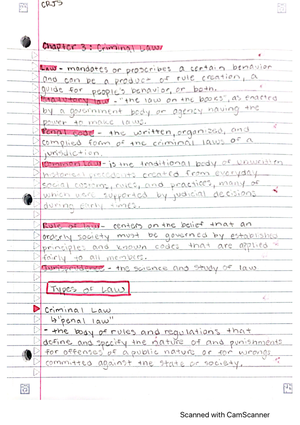 CRJS
Chapter 3: Criminal Law
Law - mandates or proscribes a certain behavior
and can be a product of rule creation, a
guide for people's behavior, or both.
Statutory Law - "the law on the books", as enacted
by a government body or agency having the
power to make laws.
Penal Code - the written, organized, and
compiled form of the criminal laws of a
jurisdiction.
Common Law - is the traditional body of unwritten
historical precedents created from everyday
social customs, rules, and practices, many of
which were supported by judicial decisions
during early times.
Rule of Law - centers on the belief that an
orderly society must be governed by established
principles and known codes that are applied
fairly to all members.
- the science and study of law
Types of Law
Criminal Law
↳ "penal law"
- the body of rules and regulations that
define and specify the nature of and punishments
for offenses of a public nature or for wrongs
committed against the state or society.
Scanned with CamScanner